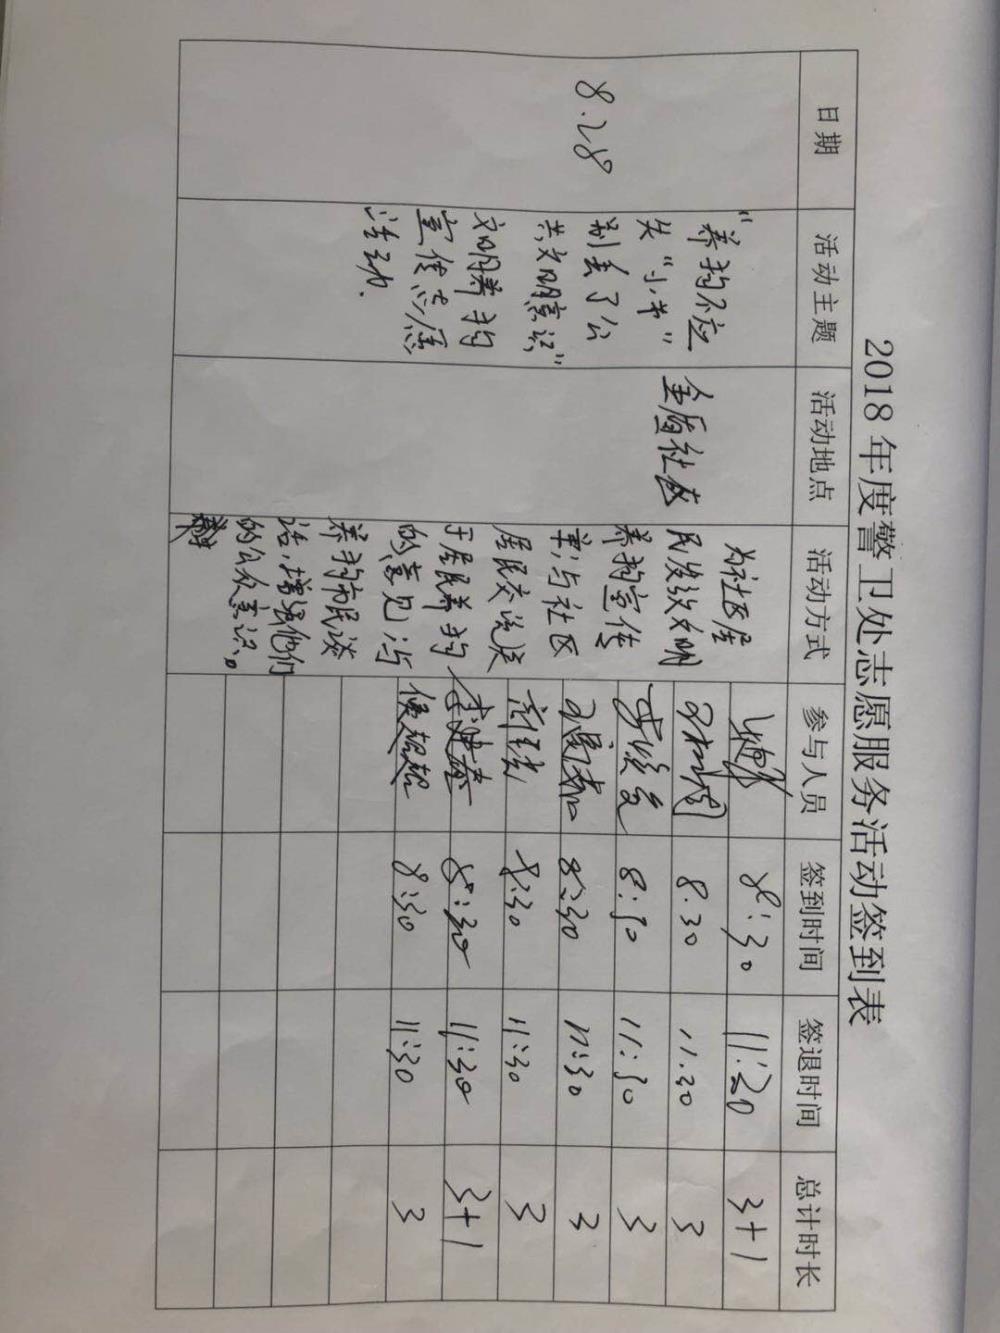 2018 年度警卫处志愿服务活动签到表
日期 活动主题 活动地点 活动方式 参与人员 签到时间 签退时间 总计时长
8.28
“养狗不应
失“小节”
别丢了公
共文明意识”
文明养狗
宣传志愿
活动.
金盾社区
为社区居
民发放文明
养狗宣传
单；与社区
居民交流关
于居民养狗
的意见；与
养狗市民谈
话，增强他们
的公众意识。
8:30 11:20 3+1
8.30 11.30 3
8:30 11:30 3
8:30 11:30 3
8:30 11:30 3
李建春 8:30 11:30 3+1
8:30 11:30 3